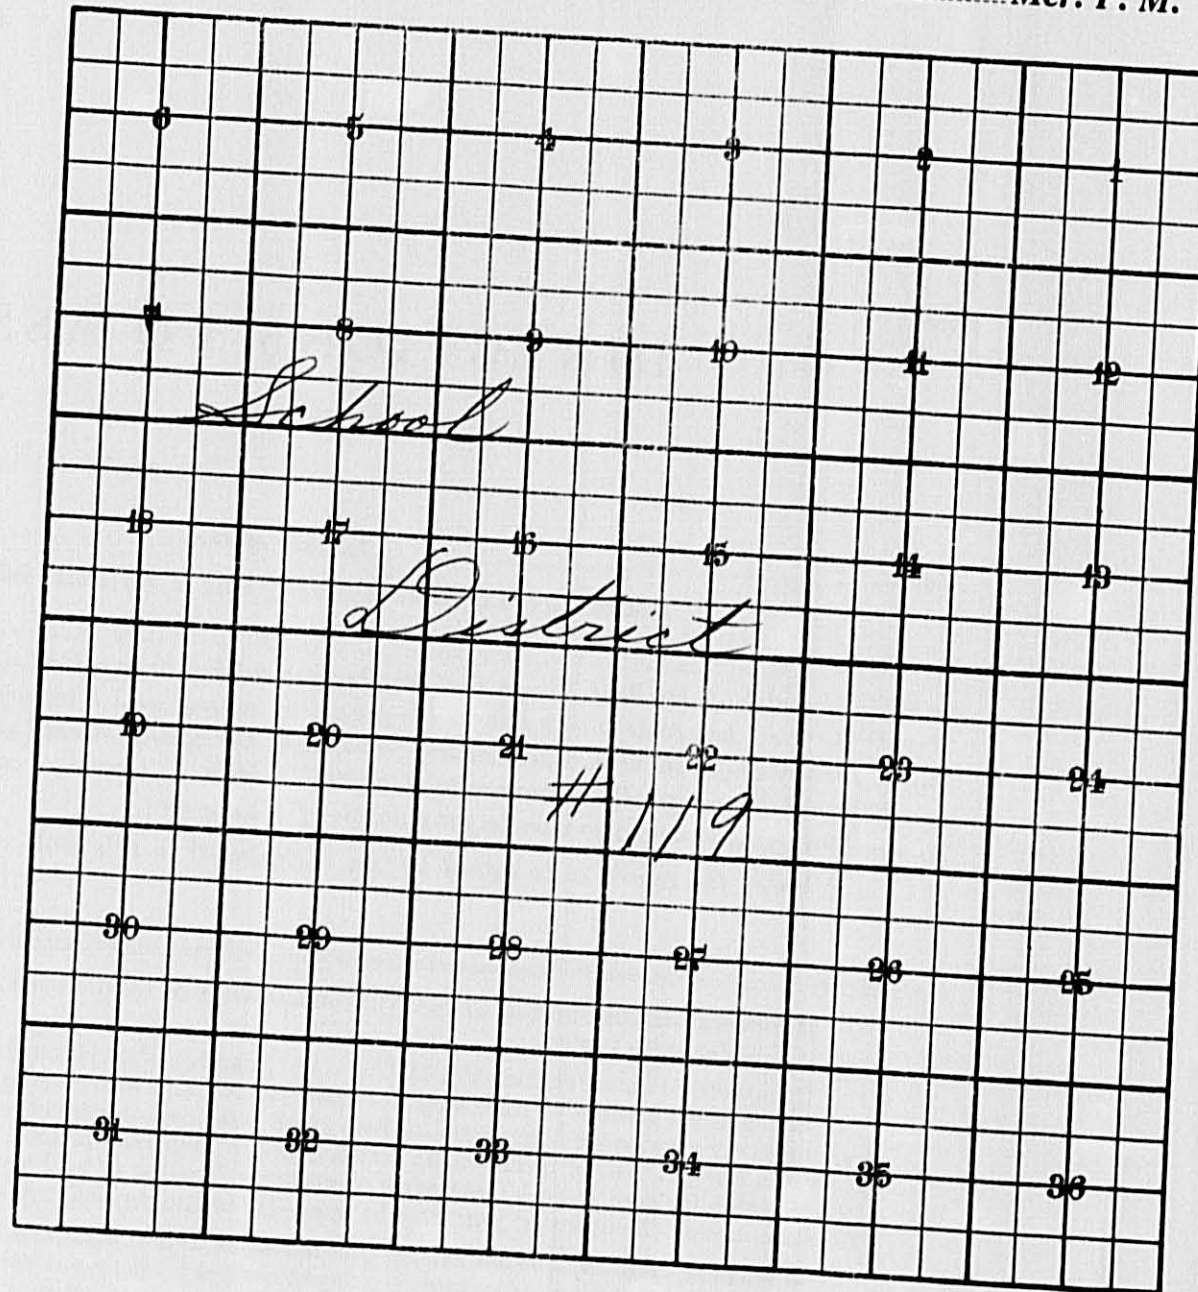 Mer. P. M.
6 5 4 3 2 1
7 8 9 10 11 12
School
18 17 16 15 14 13
District
19 20 21 22 23 24
# 119
30 29 28 27 26 25
31 32 33 34 35 36